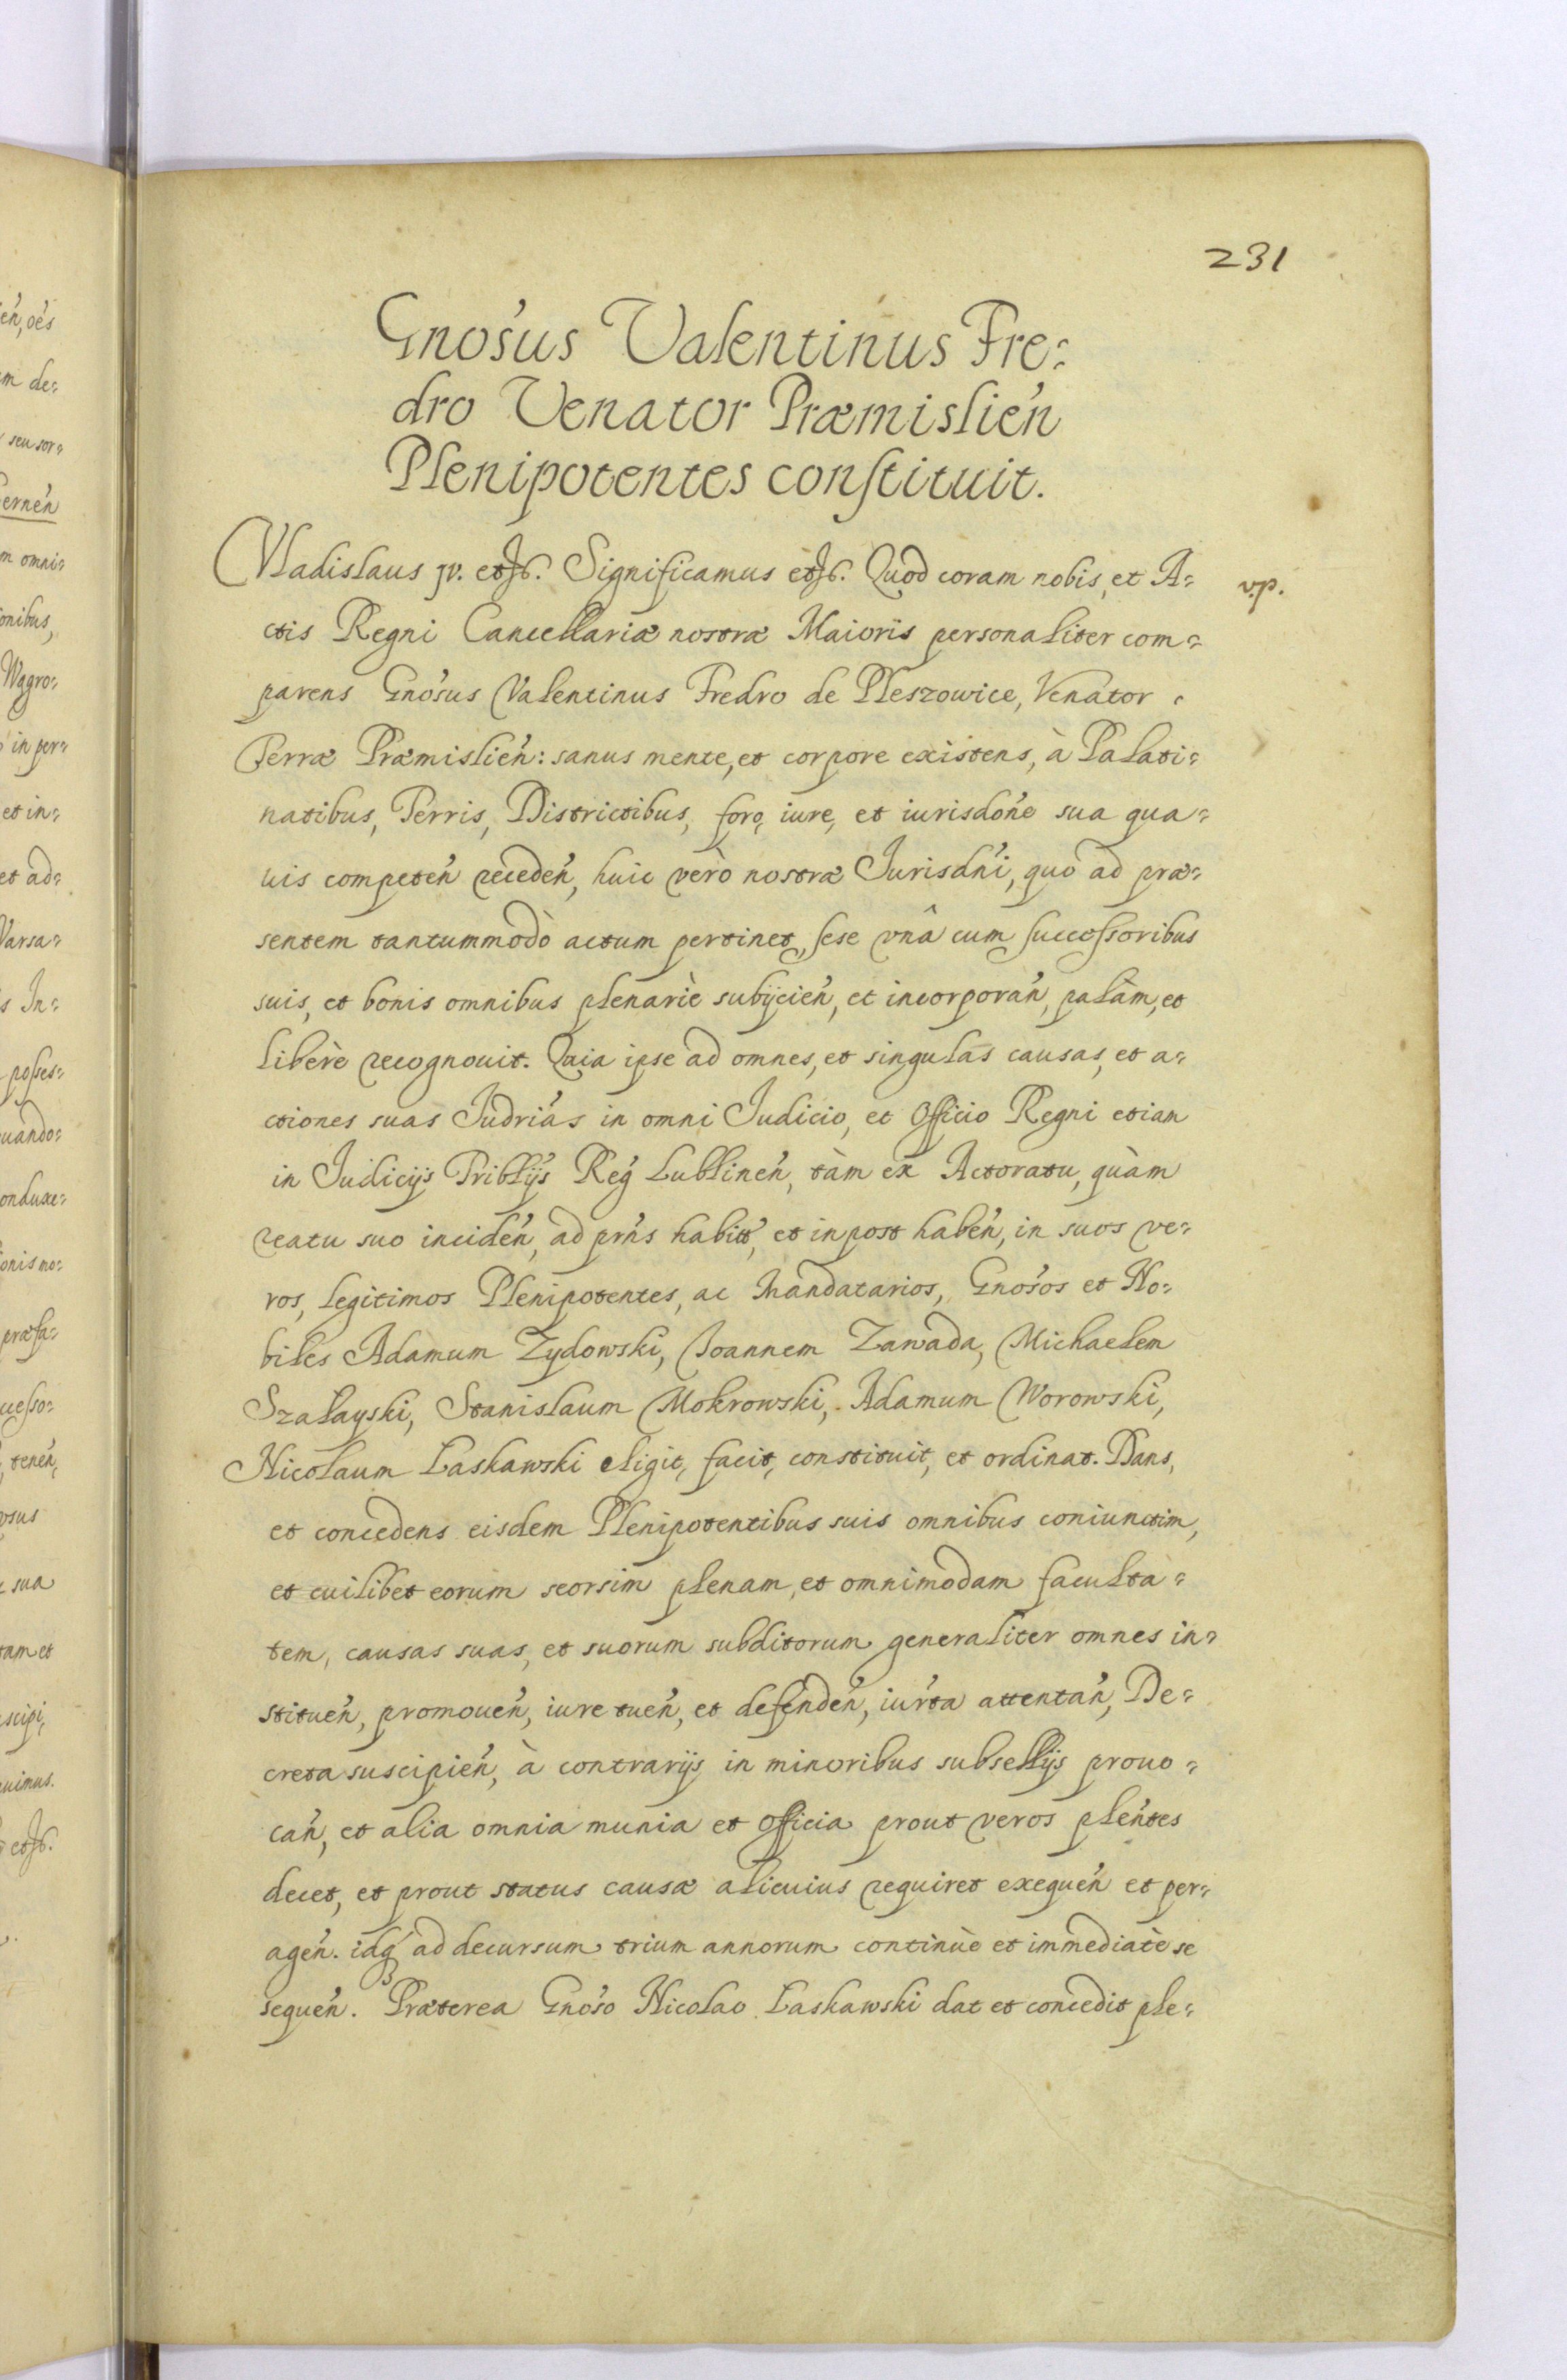 231
Gnosus Valentinus Fre:
dro Venator Præmislień
Plenipotentes constituit.
Vladislaus IV. etc. Significamus etc. Quod coram nobis, et A: v.p.
ctis Regni Cancellariæ nostræ Maioris personaliter com:
parens Gnosus Valentinus Fredro de Pleszowice, Venator
Terræ Præmislień: sanus mente, et corpore existens, à Palati:
natibus, Terris, Districtibus, foro, iure, et iurisdoñe sua qua:
uis competeń recedeń, huic verò nostræ Jurisdńi, quo ad præ:
sentem tantummodò actum pertinet, sese vnâ cum successoribus
suis, et bonis omnibus plenariè subijcień, et incorporań, palàm, et
liberè recognouit. Quia ipse ad omnes, et singulas causas, et a:
ctiones suas Judriás in omni Judicio, et Officio Regni etiam
in Judicijs Triblijs Reg Lublineń, tàm ex Actoratu, quàm
reatu suo incideń, ad prńs habit, et in post habeń, in suos ve:
ros, legitimos Plenipotentes, ac Mandatarios, Gnosos et No:
biles Adamum Zydowski, Joannem Zawada, Michaelem
Szalayski, Stanislaum Mokrowski, Adamum Worowski,
Nicolaum Laskawski eligit, facit, constituit, et ordinat. Dans,
et concedens eisdem Plenipotentibus suis omnibus coniunctim,
et cuilibet eorum seorsim plenam, et omnimodam faculta:
tem, causas suas, et suorum subditorum generaliter omnes in:
stitueń, promoueń, iure tueń, et defendeń, iurta attentań, De:
creta suscipień, à contrarijs in minoribus subsellijs prouo:
cań, et alia omnia munia et officia prout veros pleńtes
decet, et prout status causæ alicuius requiret exequeń et per:
ageń. idq ad decursum trium annorum continuè et immediatè se
sequeń. Præterea Gnoso Nicolao Laskawski dat et concedit ple: